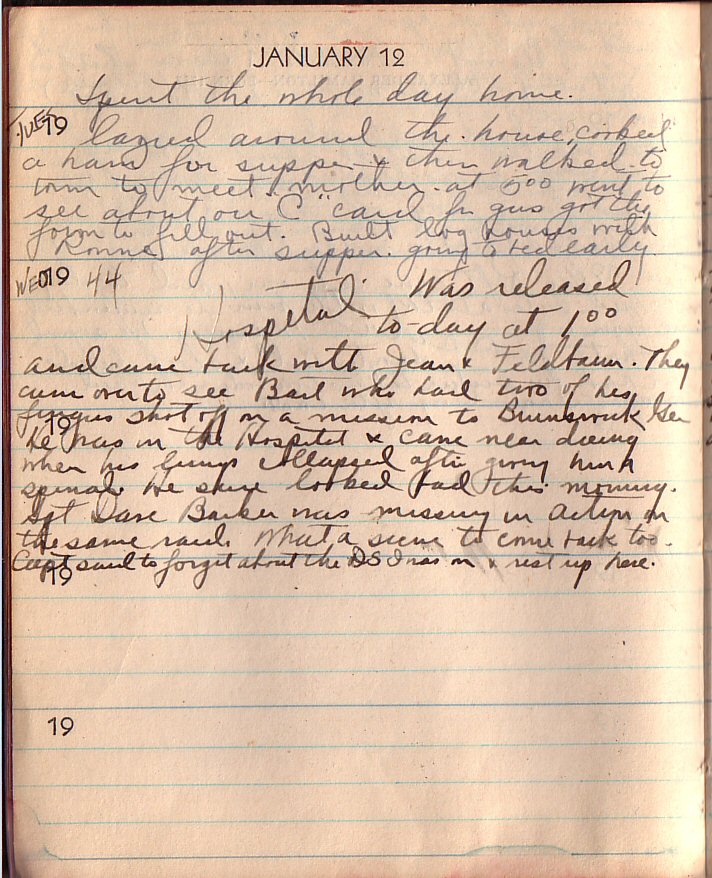 JANUARY 12
Spent the whole day home.
TUES 19 lazied around the house, cooked
a ham for supper & then walked to
town to meet mother at 5:00 went to
see about our "C" card for gas got the
form to fill out. Built log houses with
Ronnie after supper. going to bed early.
WED 19 44 Was released
Hospital to-day at 1:00
and came back with Jean & Feldbaum. They
cum over to see Bail who had two of his
fingers shot off on a mission to Brunswick Ger
19
he was in the Hospital & came near dieing
when his lungs collapsed after giving him a
spinal. He sure looked bad this morning.
Sgt Dave Barker was missing in action on
the same raid. What a scene to come back too.
Capt said to forget about the DS I was on & rest up here.
19
19